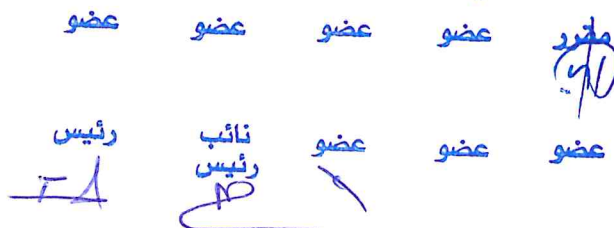 مقرر عضو عضو عضو عضو
عضو عضو عضو نائب رئيس رئيس